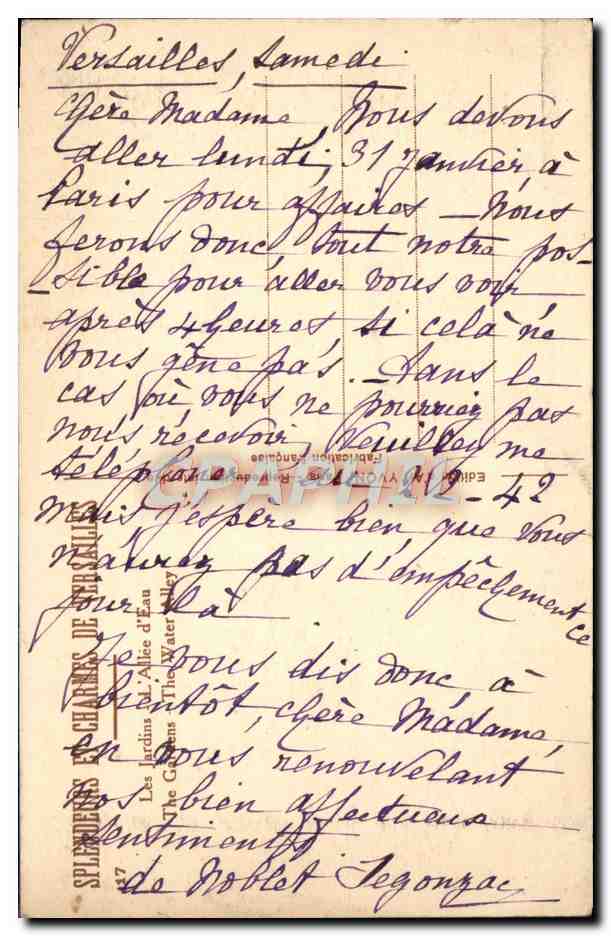 Versailles, Samedi
Chère Madame, Nous devons
aller lundi, 31 janvier à
Paris pour affaires — Nous
ferons donc, tout notre pos-
-sible pour aller vous voir
après 4 heures si celà ne
vous gêne pas. — Dans le
cas où vous ne pourriez pas
nous recevoir, Veuillez me
téléphoner 212 - 42
Mais j'espère bien que vous
n'aurez pas d'empêchement ce
jour là
Je vous dis donc, à
bientôt, chère Madame,
en vous renouvelant
nos bien affectueux
sentiments
de Noblet Segonzac
SPLENDEURS ET CHARMES DE VERSAILLES
Les Jardins - L'Allée d'Eau
The Gardens - The Water Alley
17
Edition YVON
Fabrication Française
CPAPHIL